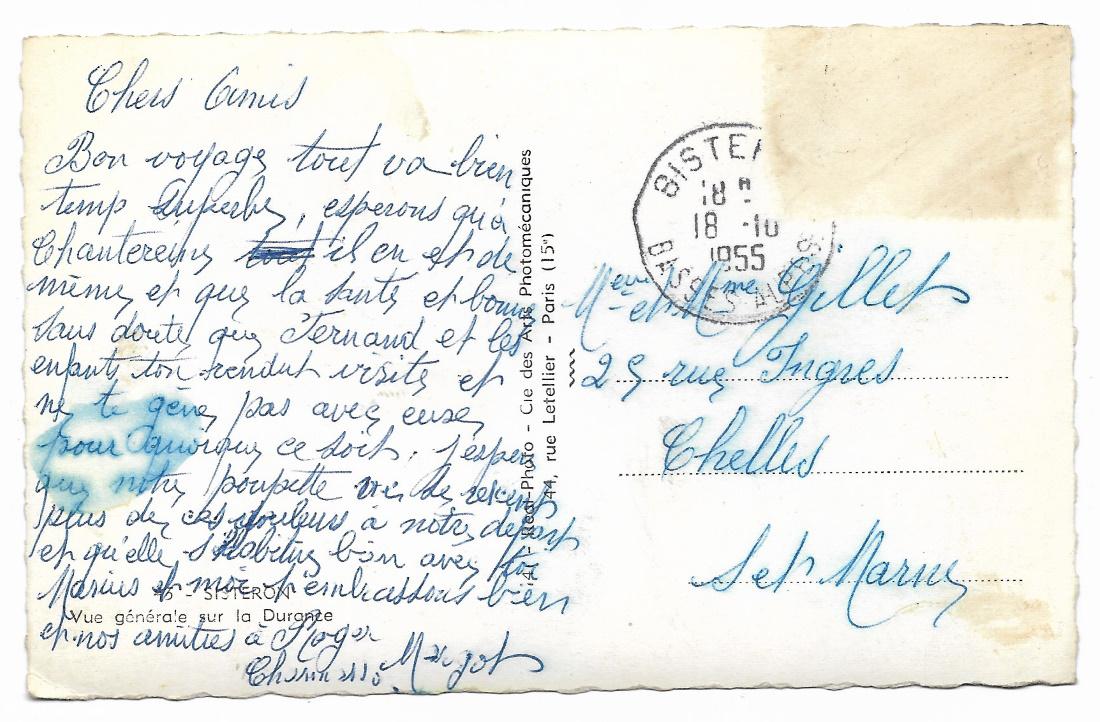 Chers Amis
Bon voyage tout va bien
temp superbe, esperons qu'à
Chantereine il en est de
même et que la santé est bonne
sans doute que Fernand et les
enfants ton rendut visite et
ne te gène pas avec euse
pour quoique ce soit. J'espere
que notre poupette
plus de ces douleurs à notre depart
et qu'elle s'habitue bien avec toi
Marius et moi t'embrassons bien
et nos amitiés à Roger
Margot
45 - SISTERON
Vue générale sur la Durance
Real-Photo - Cie des Arts Photomécaniques
44, rue Letellier - Paris (15e)
BISTER
18 H
18 -10
1955
BASSES ALPES
Meur et Mme Gillet
25 rue Ingres
Chelles
S et Marne